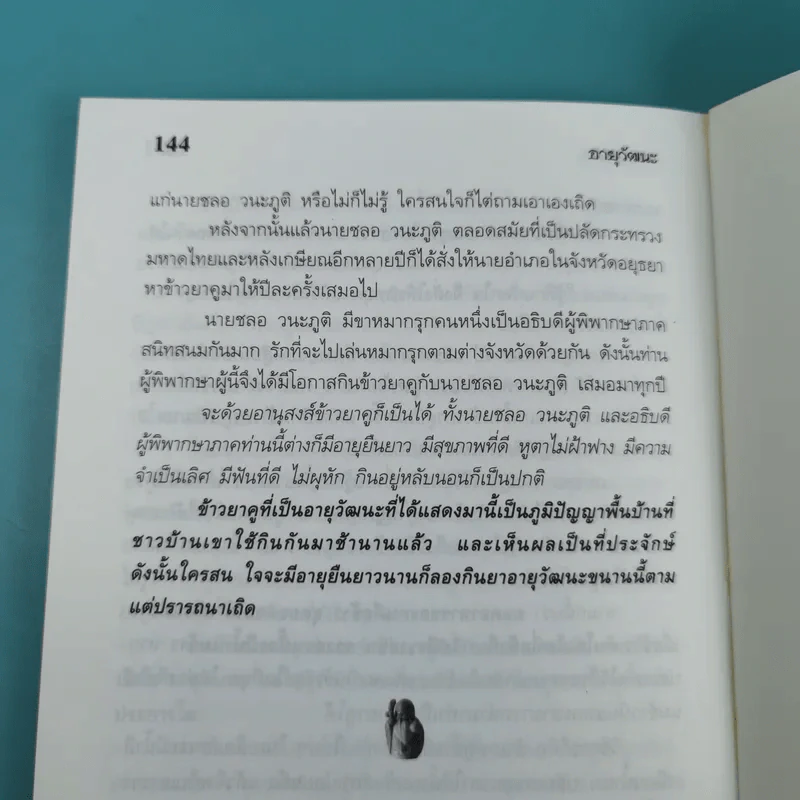 144
อายุวัฒนะ
แก่นายชลอ วนะภูติ หรือไม่ก็ไม่รู้ ใครสนใจก็ไต่ถามเอาเองเถิด
หลังจากนั้นแล้วนายชลอ วนะภูติ ตลอดสมัยที่เป็นปลัดกระทรวง
มหาดไทยและหลังเกษียณอีกหลายปีก็ได้สั่งให้นายอำเภอในจังหวัดอยุธยา
หาข้าวยาคูมาให้ปีละครั้งเสมอไป
นายชลอ วนะภูติ มีขาหมากรุกคนหนึ่งเป็นอธิบดีผู้พิพากษาภาค
สนิทสนมกันมาก รักที่จะไปเล่นหมากรุกตามต่างจังหวัดด้วยกัน ดังนั้นท่าน
ผู้พิพากษาผู้นี้จึงได้มีโอกาสกินข้าวยาคูกับนายชลอ วนะภูติ เสมอมาทุกปี
จะด้วยอานุสงส์ข้าวยาคูก็เป็นได้ ทั้งนายชลอ วนะภูติ และอธิบดี
ผู้พิพากษาภาคท่านนี้ต่างก็มีอายุยืนยาว มีสุขภาพที่ดี หูตาไม่ฝ้าฟาง มีความ
จำเป็นเลิศ มีฟันที่ดี ไม่ผุหัก กินอยู่หลับนอนก็เป็นปกติ
ข้าวยาคูที่เป็นอายุวัฒนะที่ได้แสดงมานี้เป็นภูมิปัญญาพื้นบ้านที่
ชาวบ้านเขาใช้กินกันมาช้านานแล้ว และเห็นผลเป็นที่ประจักษ์
ดังนั้นใครสน ใจจะมีอายุยืนยาวนานก็ลองกินยาอายุวัฒนะขนานนี้ตาม
แต่ปรารถนาเถิด